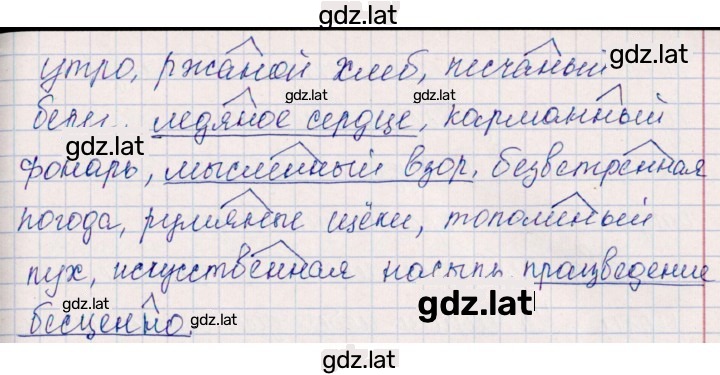 gdz.lat
утро, ржаной хлеб, песчаный
gdz.lat
gdz.lat gdz.lat
ледяное сердце, карманный
фонарь, мысленный взор, безветренная
погода, румяные щёки, тополиный
пух, искусственная насыпь працведение
gdz.lat gdz.lat
бесценно. gdz.lat
gdz.lat